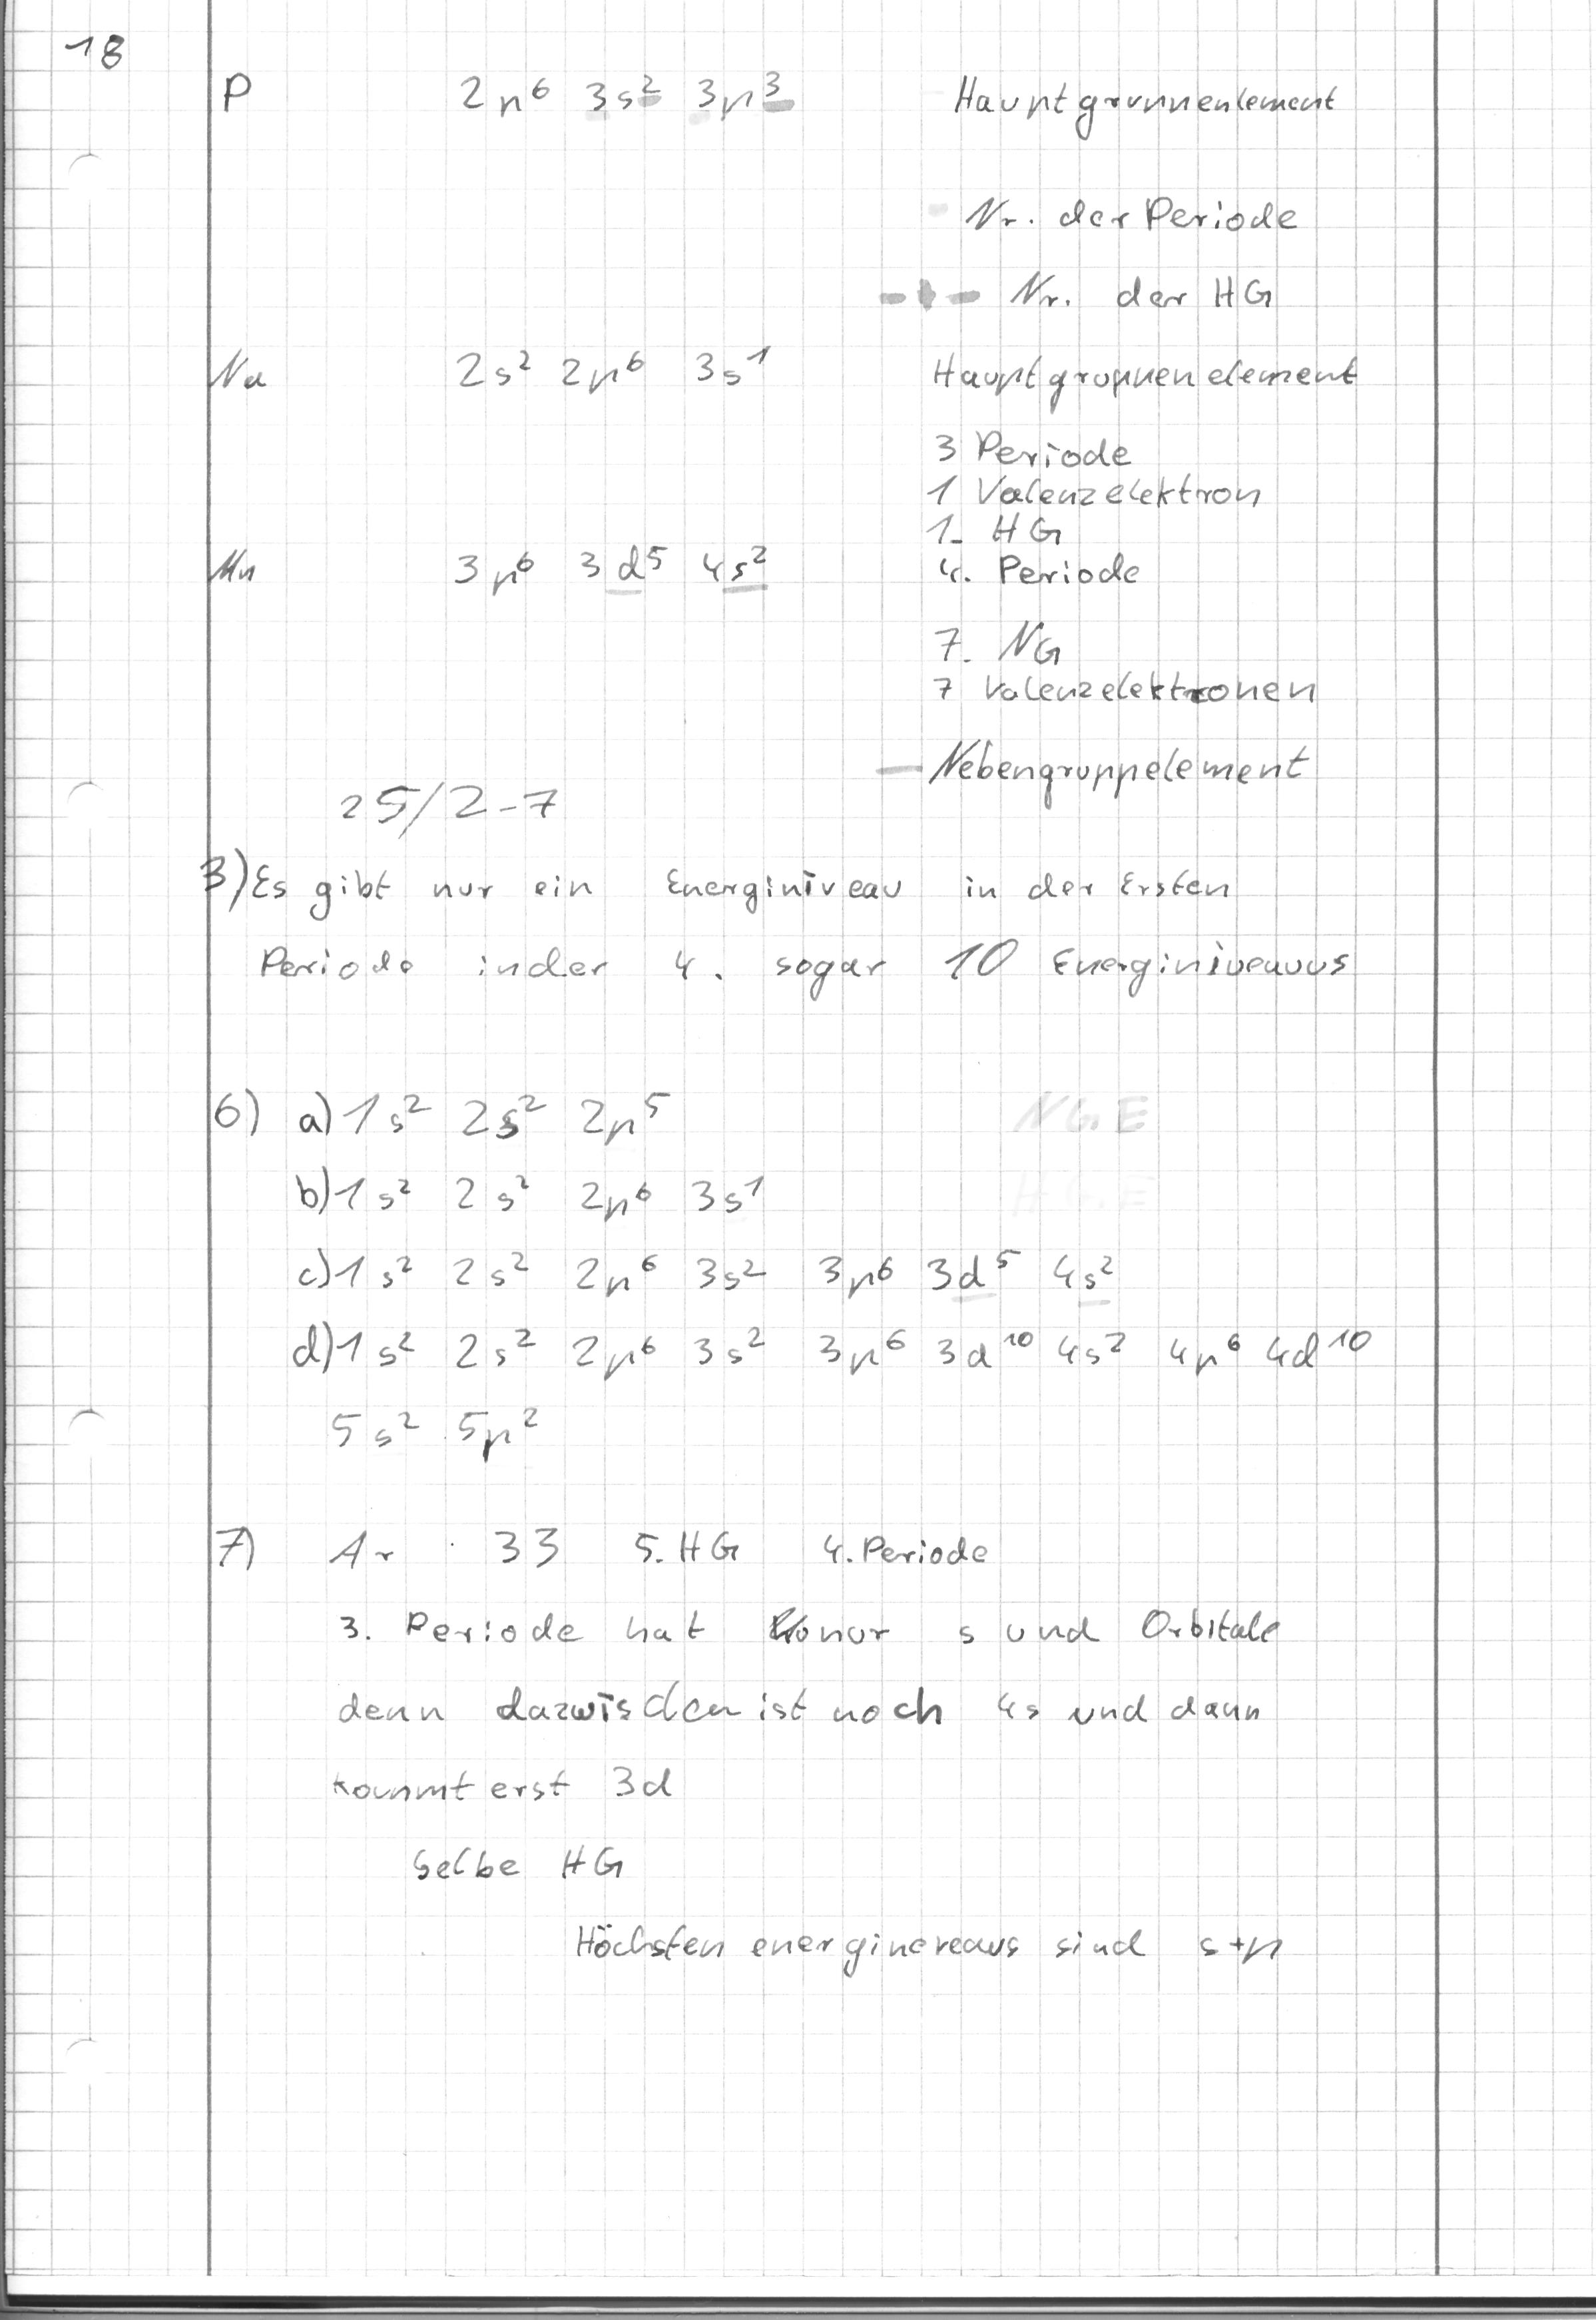 18
P 2p⁶ 3s² 3p³ Hauptgruppenelement
Nr. der Periode
Nr. der HG
Na 2s² 2p⁶ 3s¹ Hauptgruppenelement
3 Periode
1 Valenzelektron
1. HG
Mn 3p⁶ 3d⁵ 4s² 4. Periode
7. NG
7 Valenzelektronen
Nebengruppelement
25/2-7
3) Es gibt nur ein Energiniveau in der Ersten
Periode in der 4. sogar 10 Energiniveauus
6) a) 1s² 2s² 2p⁵ NG.E
b) 1s² 2s² 2p⁶ 3s¹ HG.E
c) 1s² 2s² 2p⁶ 3s² 3p⁶ 3d⁵ 4s²
d) 1s² 2s² 2p⁶ 3s² 3p⁶ 3d¹⁰ 4s² 4p⁶ 4d¹⁰
5s² 5p²
7) Ar 33 5. HG 4. Periode
3. Periode hat nur s und Orbitale
denn dazwischen ist noch 4s und dann
kommt erst 3d
Selbe HG
Höchsten sind s+p